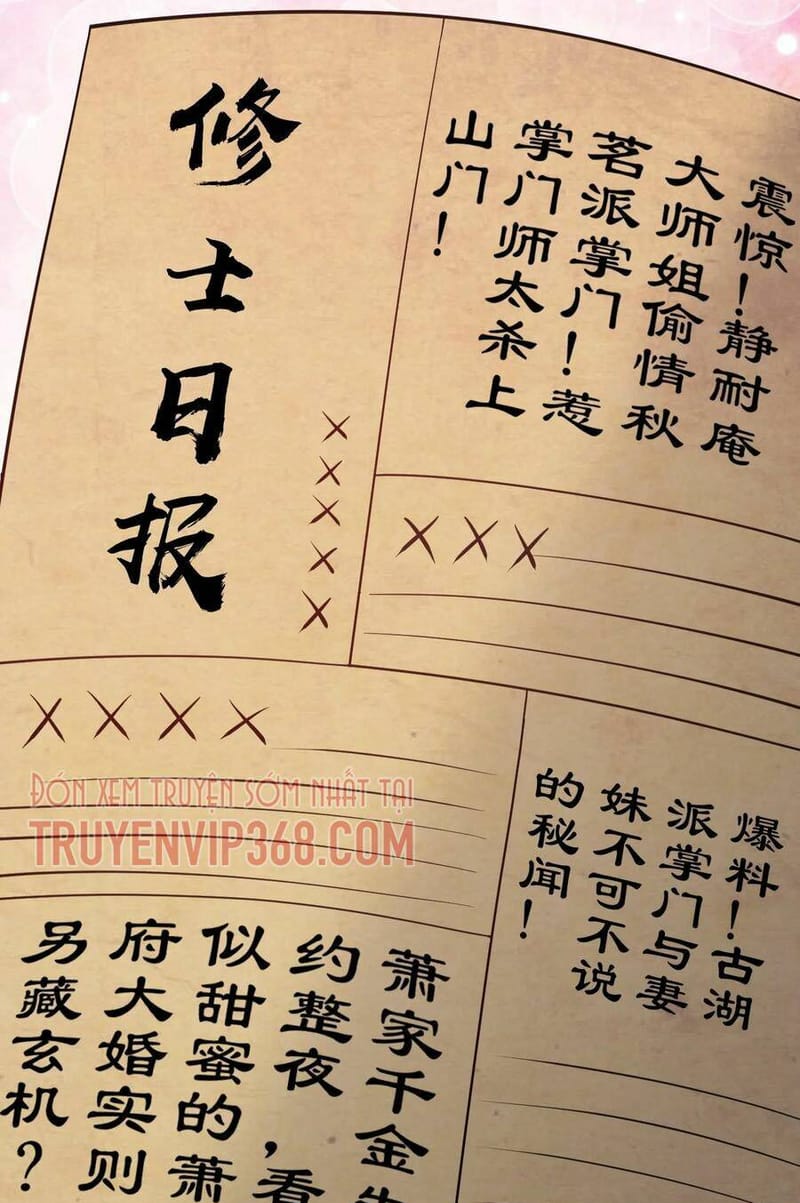 修士日报
×××××
震惊！静耐庵
大师姐偷情秋
茗派掌门！惹
掌门师太杀上
山门！
×××
××××
ĐÓN XEM TRUYỆN SỚM NHẤT TẠI
TRUYENVIP368.COM
爆料！古湖
派掌门与妻
妹不可不说
的秘闻！
萧家千金
约整夜，看
似甜蜜的萧
府大婚实则
另藏玄机？